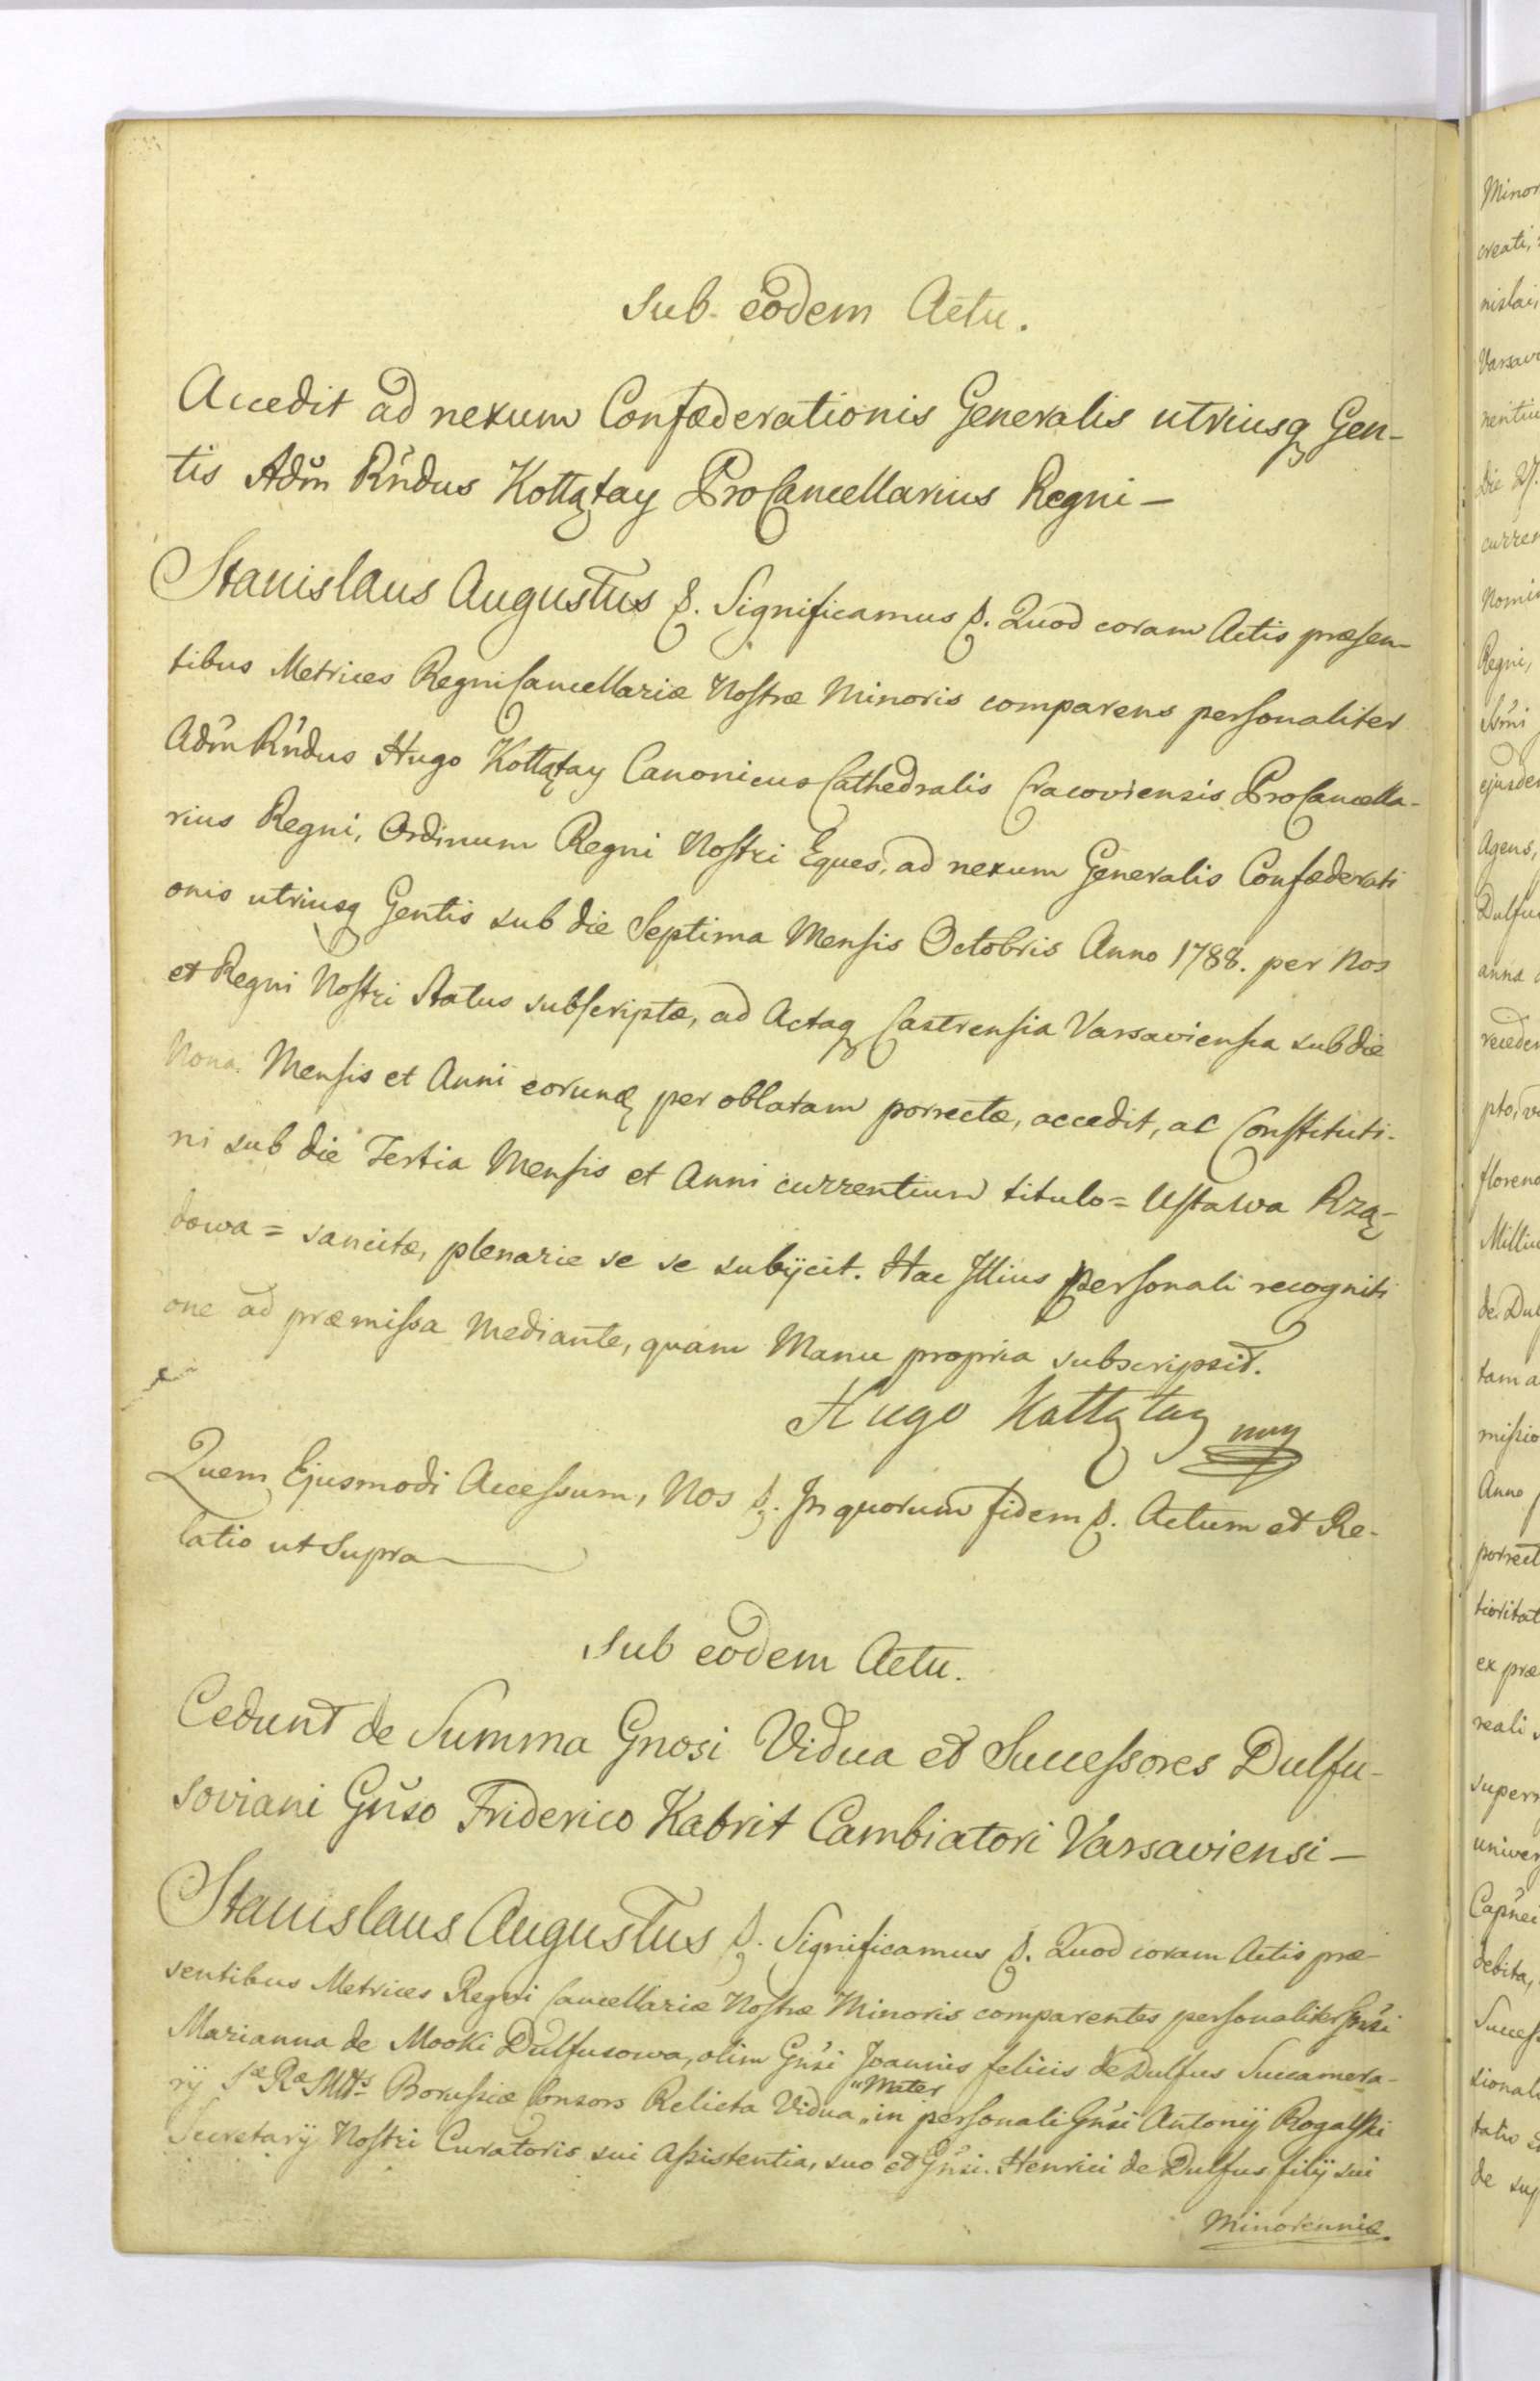 Sub eodem Actu.
Accedit ad nexum Confæderationis Generalis utriusq Gen-
tis Adm Rndus Kołłątay ProCancellarius Regni —
Stanislaus Augustus &. Significamus &. Quod coram Actis præsen-
tibus Metrices Regni Cancellariæ Nostræ Minoris comparens personaliter
Adm Rndus Hugo Kołłątay Canonicus Cathedralis Cracoviensis ProCancella-
rius Regni, Ordinum Regni Nostri Eques, ad nexum Generalis Confæderati
onis utriusq Gentis sub die Septima Mensis Octobris Anno 1788. per Nos
et Regni Nostri Status subscriptæ, ad Actaq Castrensia Varsaviensia sub die
Nona Mensis et Anni eorund per oblatam porrectæ, accedit, ac Constituti-
ni sub die Tertia Mensis et Anni currentium titulo = Ustawa Rzą-
dowa = sancitæ, plenarie se se subijcit. Hac Illius personali recogniti
one ad præmissa mediante, quam Manu propria subscripsit.
Hugo Kołłątay mp
Quem Ejusmodi Accessum, Nos &. In quorum fidem &. Actum et Re-
latio ut Supra
Sub eodem Actu.
Cedunt de Summa Gnosi Vidua et Successores Dulfu-
soviani Gnso Friderico Kabrit Cambiatori Varsaviensi —
Stanislaus Augustus &. Significamus &. Quod coram Actis præ-
sentibus Metrices Regni Cancellariæ Nostræ Minoris comparentes personaliter Gnsi
Marianna de Mooki Dulfusowa, olim Gnsi Joannis felicis de Dulfus Succamera-
rij Sæ Ræ Mttis Borussiæ Consors Relicta Vidua "Mater in personali Gnsi Antonij Rogalski
Secretarij Nostri Curatoris sui Assistentia, suo et Gnsi Henrici de Dulfus filij sui
Minorennis